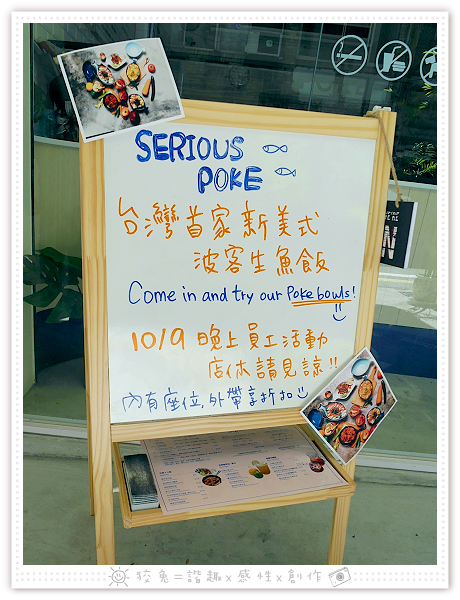 SERIOUS
POKE
台灣首家新美式
波客生魚飯
Come in and try our Poke bowls!
10/9 晚上員工活動
店休請見諒!!
內有座位,外帶享折扣
狡兔=諧趣x感性x創作